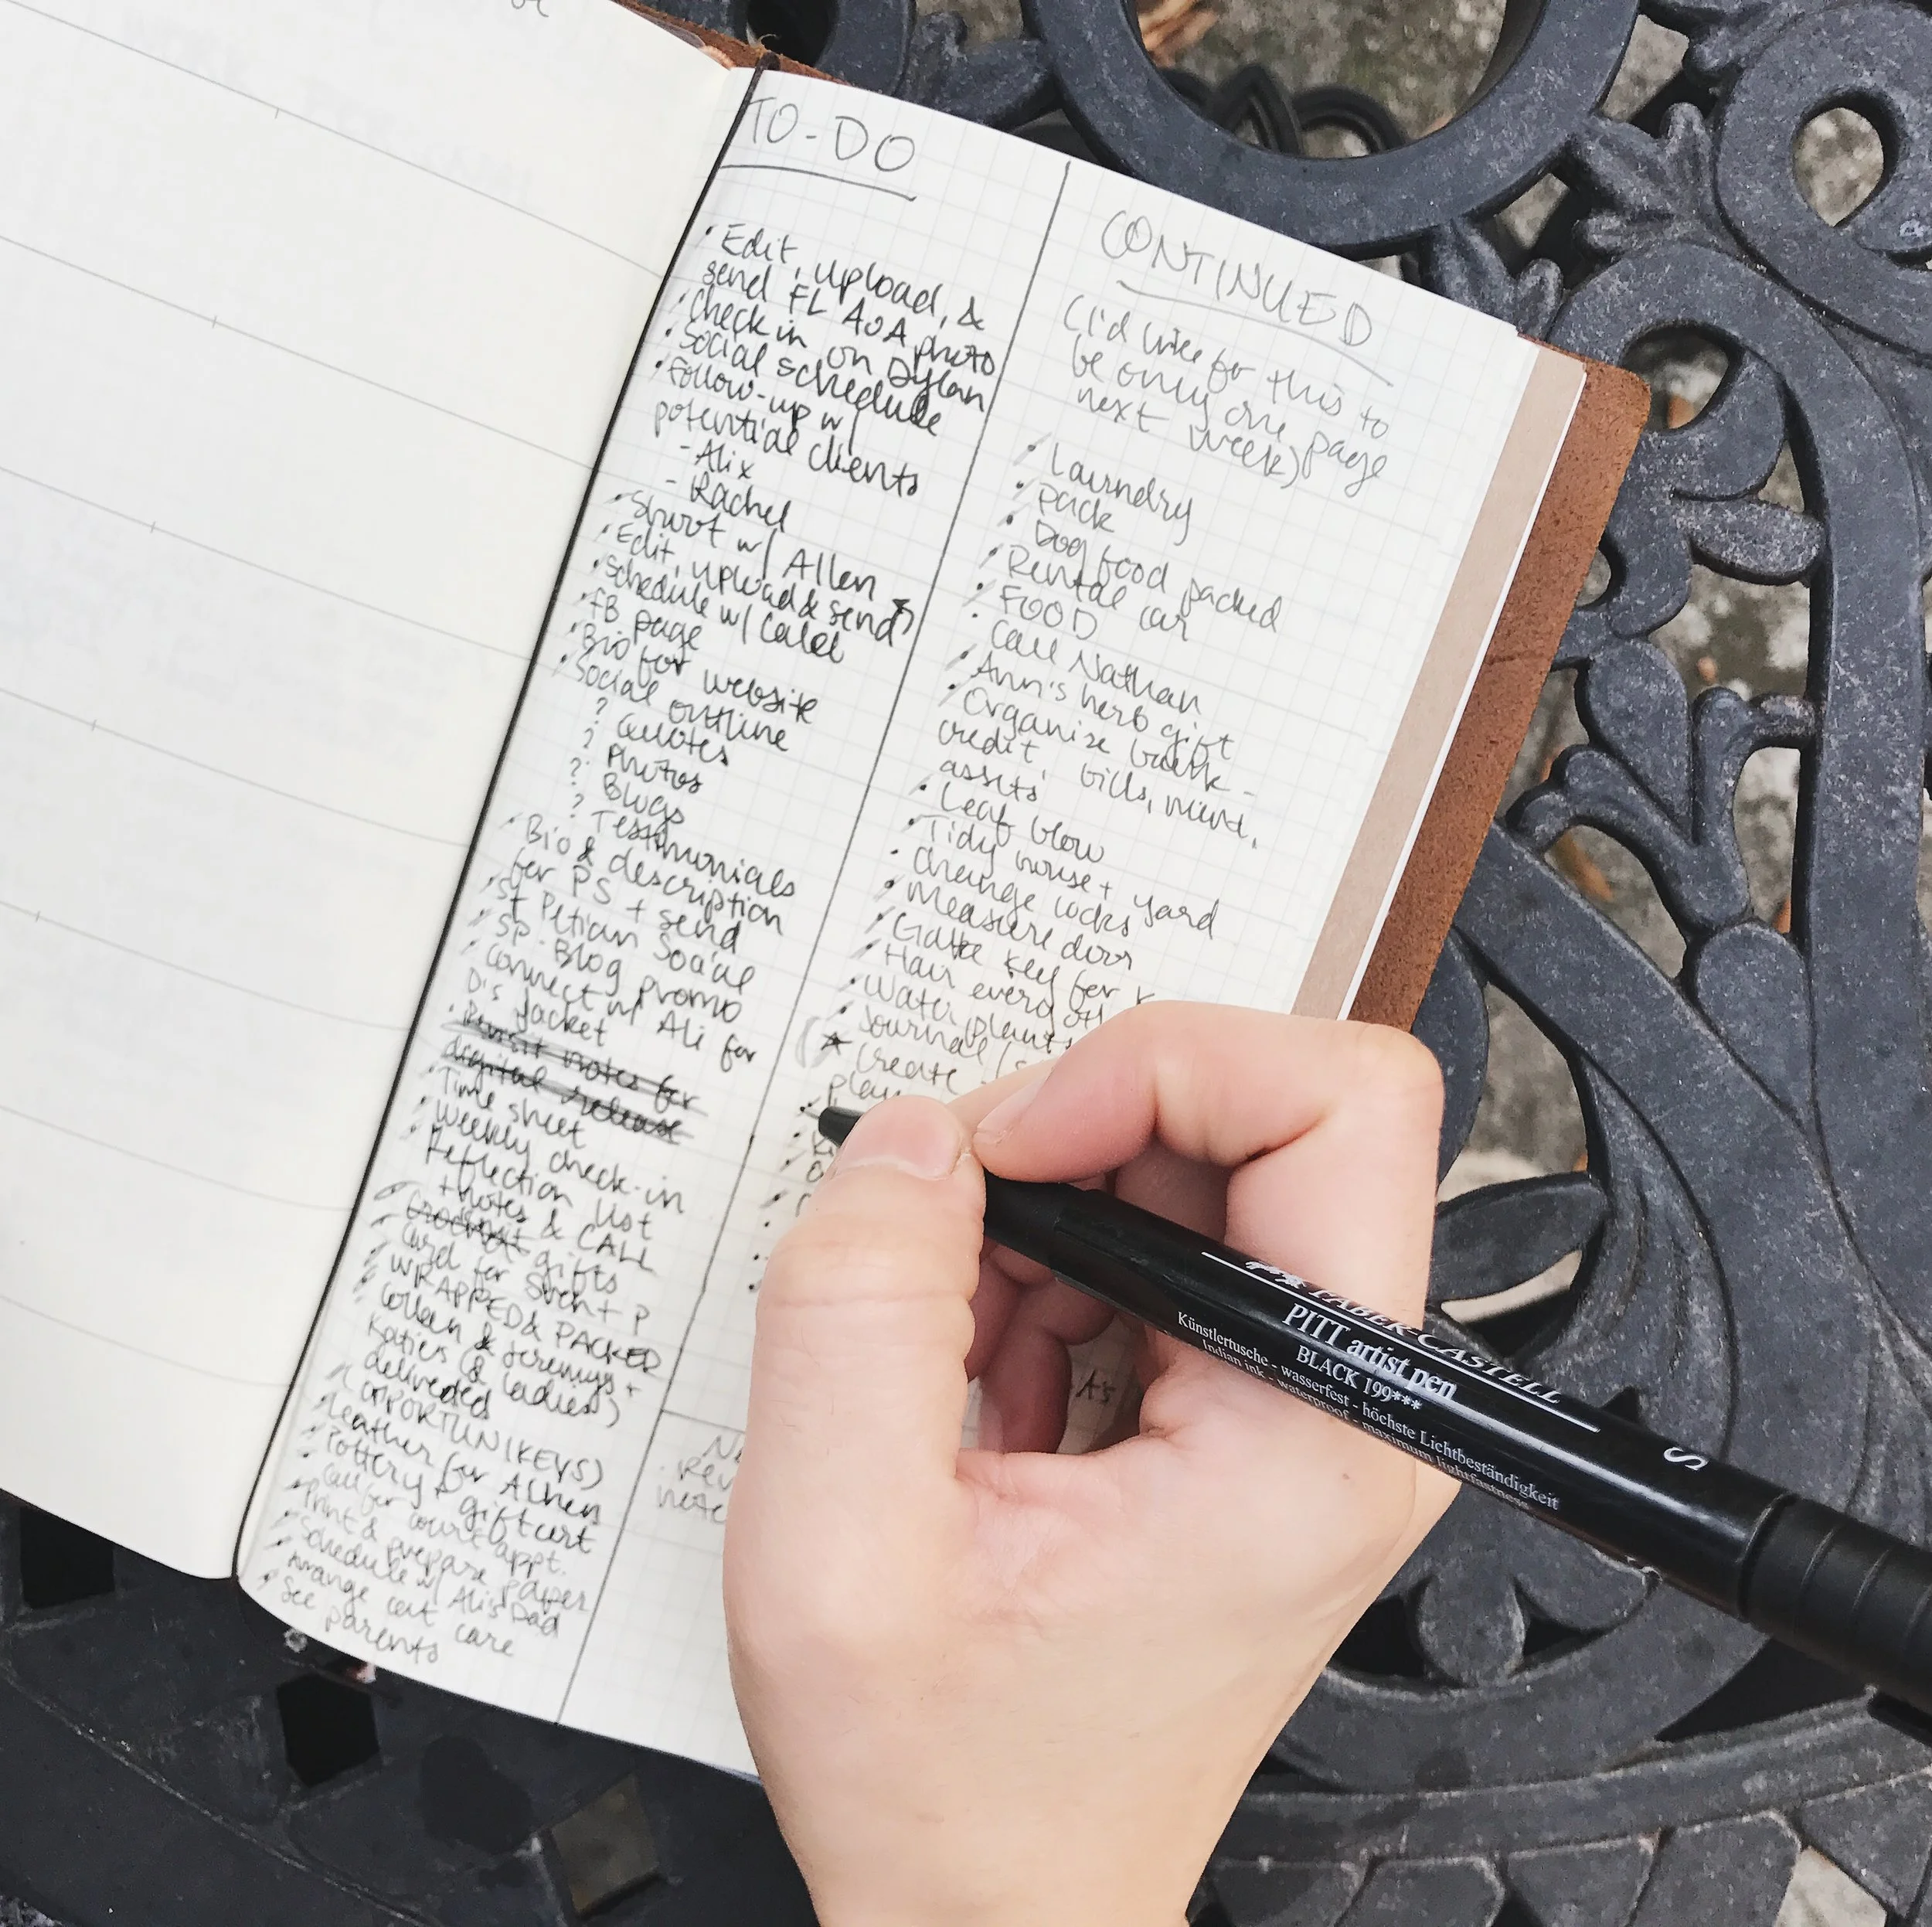 TO-DO
• Edit, upload, &
send FL AOA photo
• Check in on Dylan
• Social schedule
• Follow-up w/
potential clients
- Alix
- Rachel
• Shoot w/ Allen
• Edit, upload & send
• Schedule w/ Caleb
• FB page
• Bio for website
• Social outline
? Quotes
? Photos
? Blogs
? Testimonials
• Bio & description
for PS + send
• St Petian Social
• SP. Blog promo
• Connect w/ Ali for
D's jacket
notes for
digital release
• Time sheet
• Weekly check-in
• Reflection list
+ notes & CALL
gifts
• Card for + P
• WRAPPED & PACKED
& Jeremy's +
Katie's (& ladies)
delivered
(OPPORTUNIKEYS)
• Leather for
• Pottery giftcert
• Call for court appt.
• Print & prepare paper
• Schedule w/ Ali's Dad
• Arrange cat care
• See parents
CONTINUED
(I'd like for this to
be only one page
next week)
• Laundry
• Pack
• Dog food packed
• Rental car
• FOOD
• Call Nathan
• Ann's herb gift
• Organize bank -
credit, bills, mint,
assets
• Leaf blow
• Tidy house + yard
• Change locks
• Measure door
• key for
• Hair
• Water plants
• Journal
★ Create
FABER-CASTELL
PITT artist pen
BLACK 199***
Künstlertusche - wasserfest - höchste Lichtbeständigkeit
Indian ink - waterproof - maximum lightfastness
S